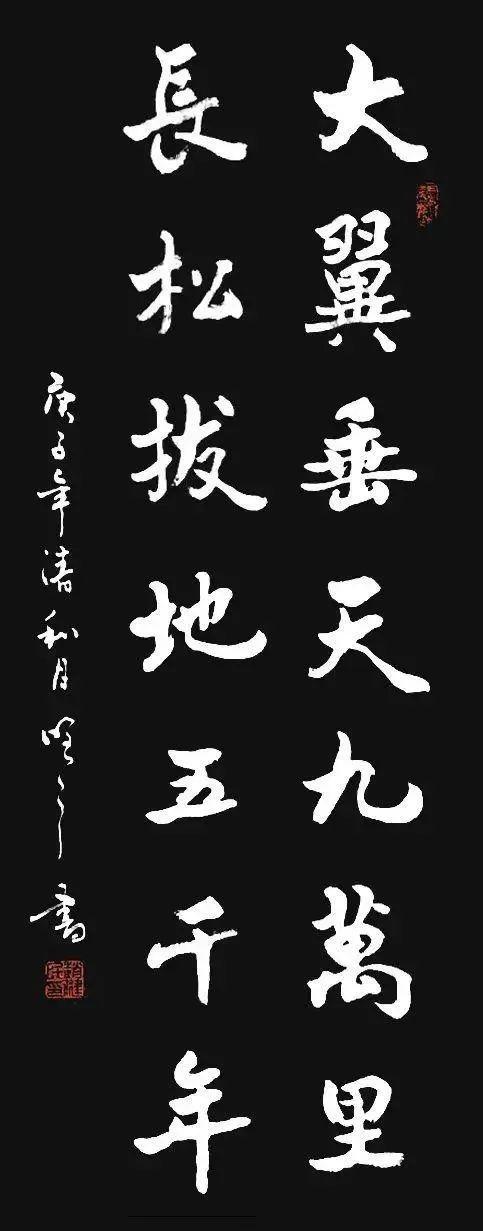 大翼垂天九萬里
長松拔地五千年
庚子年清和月
書